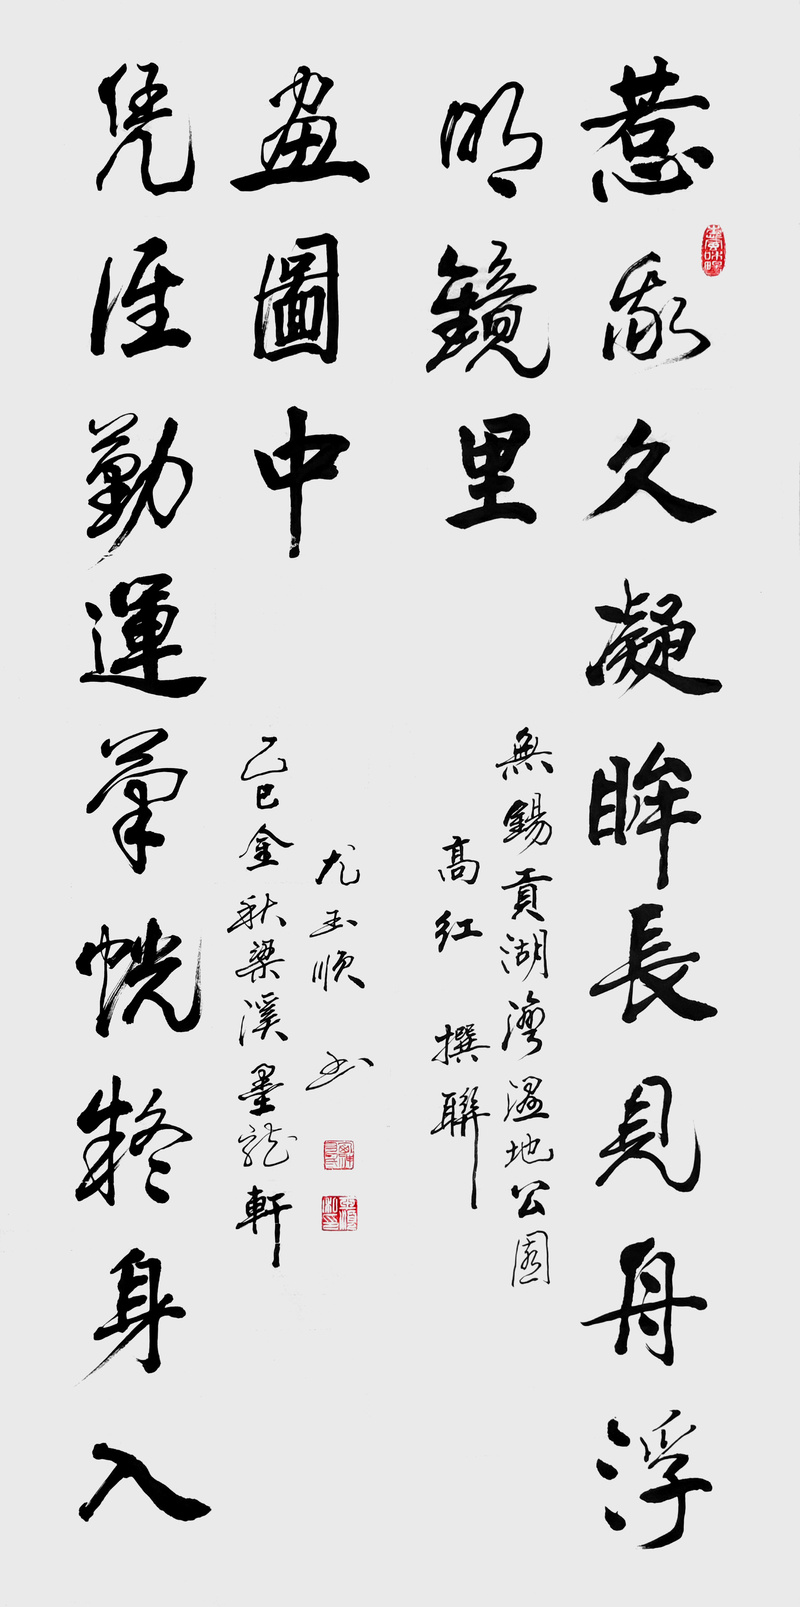 惹我久凝眸長見舟浮
明鏡里
無錫貢湖灣濕地公園
高红 撰聯
凭誰勤運筆恍疑身入
畫圖中
乙巳金秋梁溪墨龍軒
尤玉順 书